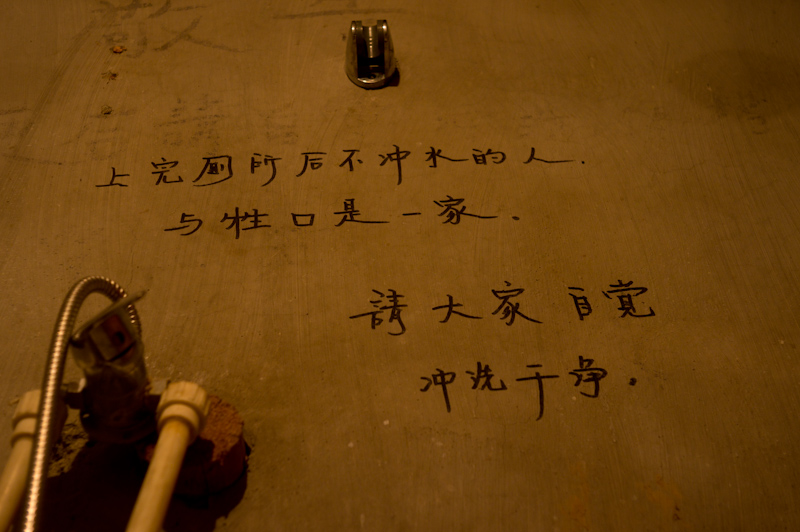 上完厕所后不冲水的人.
与牲口是一家.
請大家自觉
冲洗干净.